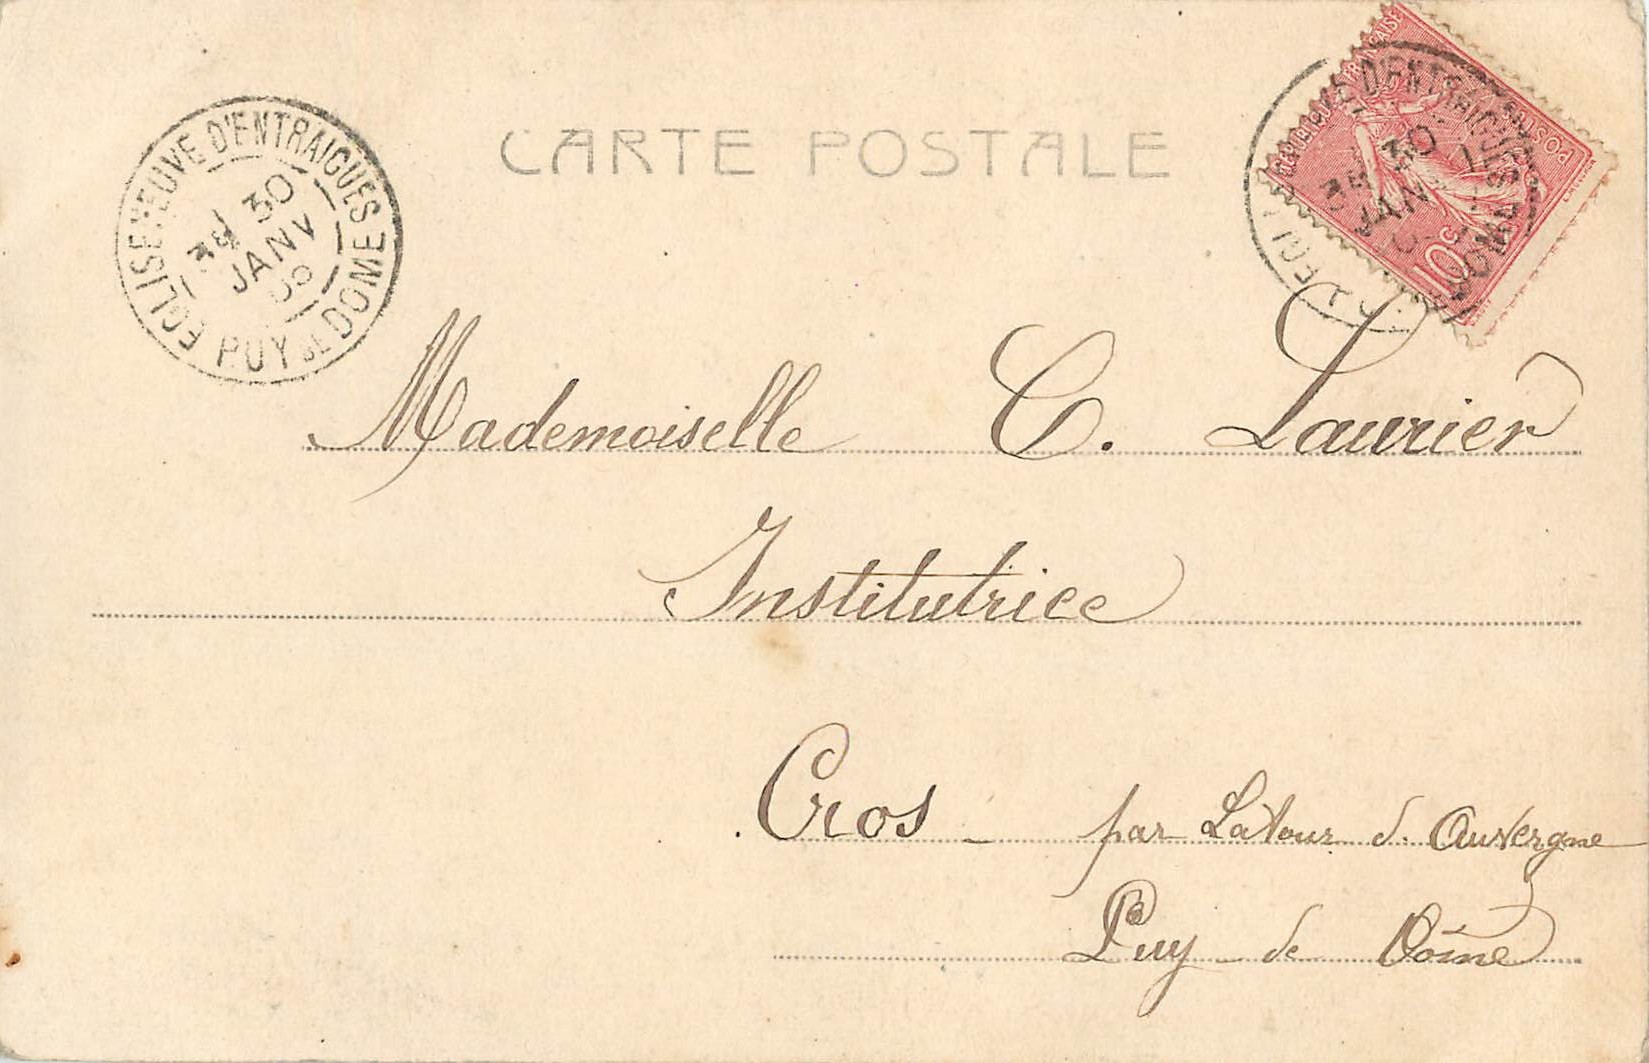 CARTE POSTALE
EGLISENEUVE D'ENTRAIGUES
3E 30
JANV
PUY DE DOME
REPUBLIQUE FRANÇAISE
POSTES
10c
D'ENTRAIGUES
30
JANV
DOME
Mademoiselle C. Laurier
Institutrice
Cros - par Latour d. Auvergne
Puy de Dôme